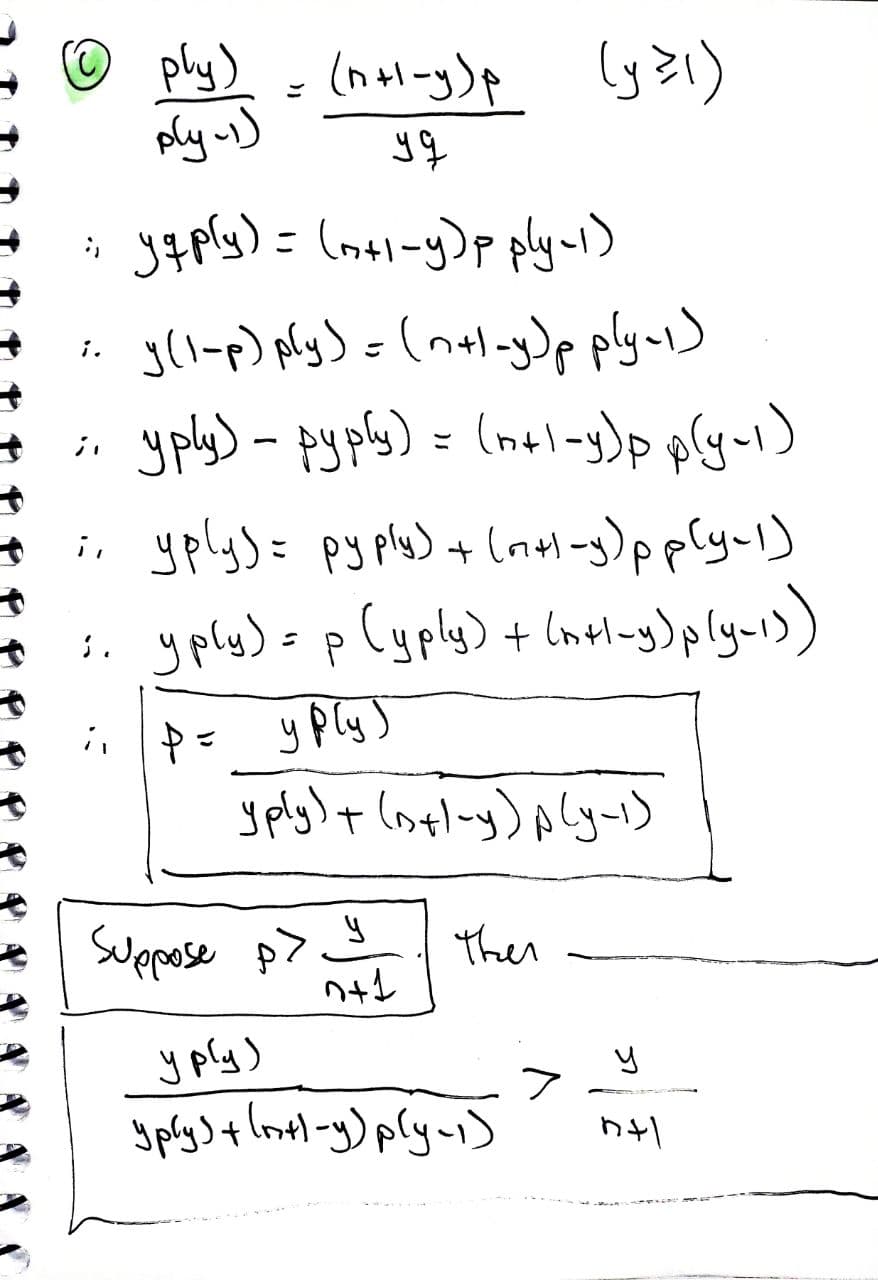 (c) p(y)/p(y-1) = (n+1-y)p/yq (y≥1)
∴ yqp(y) = (n+1-y)p p(y-1)
∴ y(1-p)p(y) = (n+1-y)p p(y-1)
∴ yp(y) - pyp(y) = (n+1-y)p p(y-1)
∴ yp(y) = pyp(y) + (n+1-y)p p(y-1)
∴ yp(y) = p(yp(y) + (n+1-y)p(y-1))
∴ p = yp(y)/yp(y) + (n+1-y)p(y-1)
Suppose p > y/n+1. Then
yp(y)/yp(y) + (n+1-y)p(y-1) > y/n+1